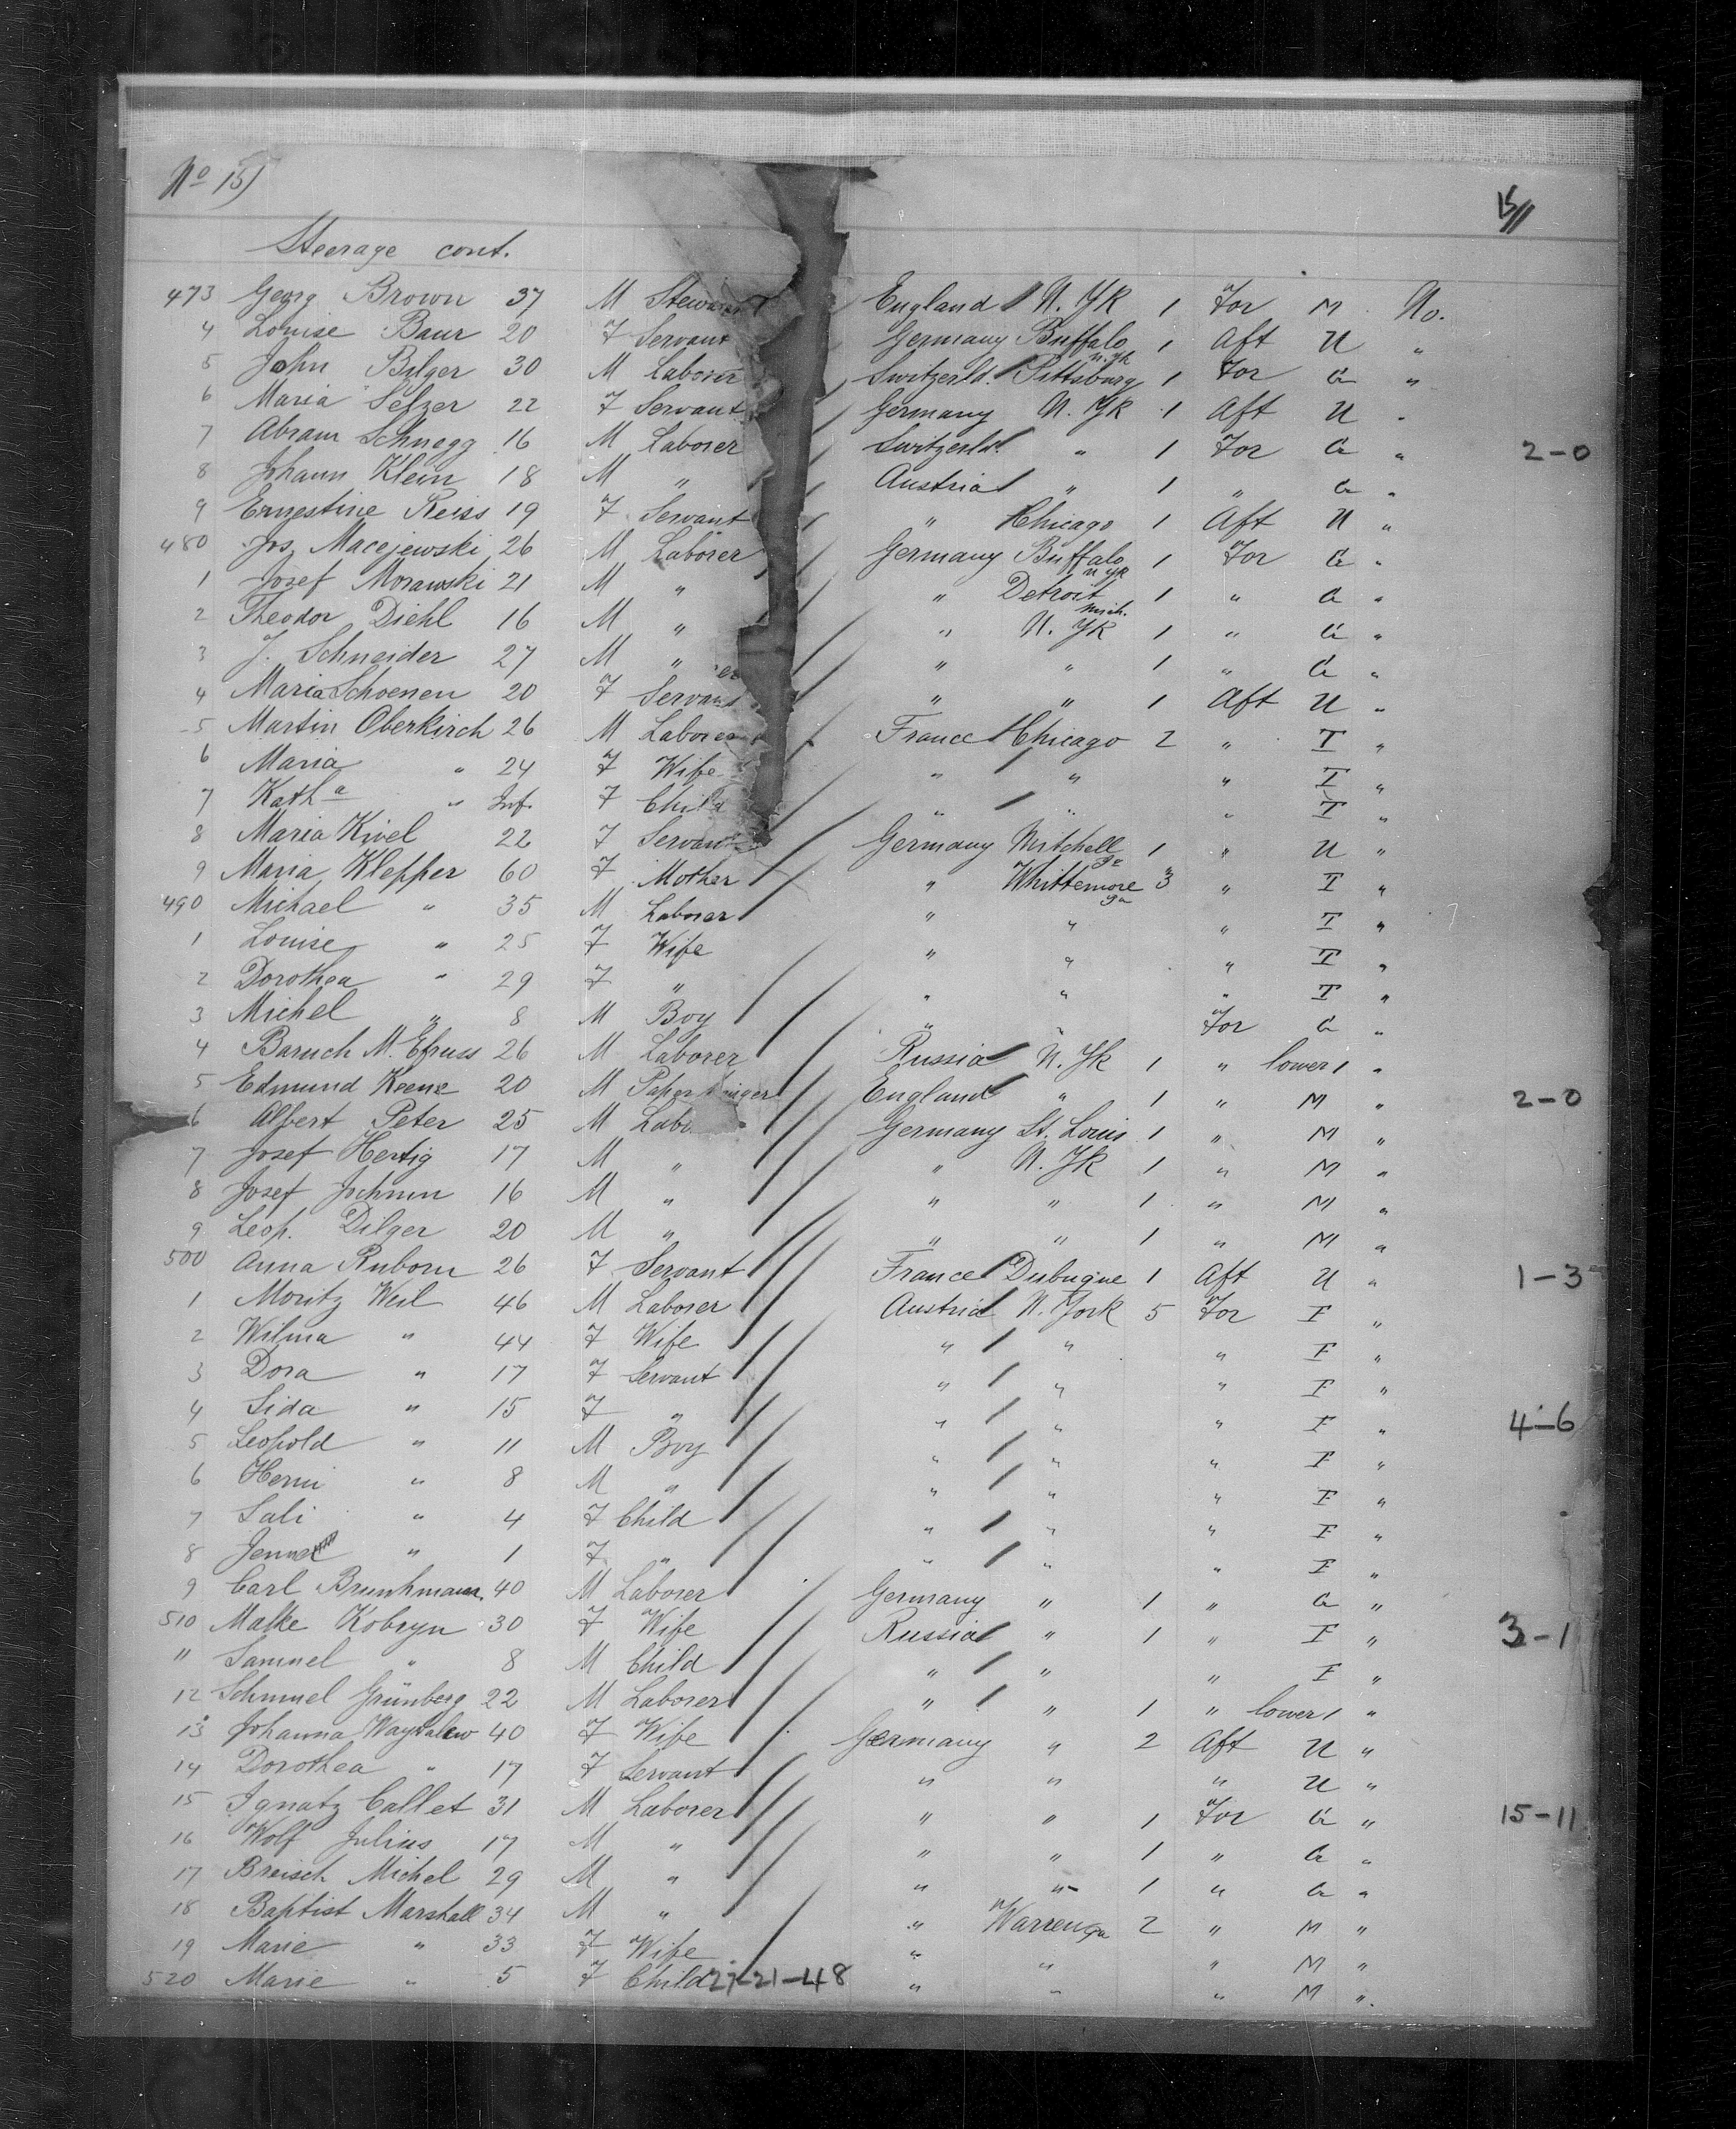 No 15)
15//
Steerage cont.
473 Georg Brown 37 M Steward England N. Yk 1 For M No.
4 Louise Baur 20 F Servant Germany Buffalo n.yk 1 Aft U "
5 John Bilger 30 M Laborer Switzerld. Pittsburg 1 For G "
6 Maria Selzer 22 F Servant Germany N. Yk 1 Aft U "
7 Abram Schnegg 16 M Laborer Switzerld. " 1 For G " 2-0
8 Johann Klein 18 M " Austria " 1 " G "
9 Ernestine Reiss 19 F Servant " Chicago 1 Aft U "
480 Jos. Macejewski 26 M Laborer Germany Buffalo n yk 1 For G "
1 Josef Morawski 21 M " " Detroit Mich. 1 " G "
2 Theodor Diehl 16 M " " N. Yk 1 " G "
3 J. Schneider 27 M " " " 1 " G "
4 Maria Schoenen 20 F Servant " " 1 Aft U "
5 Martin Oberkirch 26 M Laborer France Chicago 2 " T "
6 Maria " 24 F Wife " " " T "
7 Katha " Inf. F Child " " " T "
8 Maria Kivel 22 F Servant Germany Mitchell 1 " U "
9 Maria Klepper 60 F Mother " Whittemore 3 " T "
490 Michael " 35 M Laborer " " " T "
1 Louise " 25 F Wife " " " T "
2 Dorothea " 29 F " " " " T "
3 Michel " 8 M Boy " " For G "
4 Baruch M. Efruss 26 M Laborer Russia N. Yk 1 " lower 1 "
5 Edmund Keene 20 M Paper England " 1 " M " 2-0
6 Albert Peter 25 M Labo Germany St. Louis 1 " M "
7 Josef Hertig 17 M " " N. Yk 1 " M "
8 Josef Jochum 16 M " " " 1 " M "
9 Leop. Dilger 20 M " " " 1 " M "
500 Anna Ruborn 26 F Servant France Dubuque 1 Aft U " 1-3
1 Moritz Weil 46 M Laborer Austria N. York 5 For F "
2 Wilma " 44 F Wife " " " F "
3 Dora " 17 F Servant " " " F "
4 Sida " 15 F " " " " F " 4-6
5 Leopold " 11 M Boy " " " F "
6 Herni " 8 M " " " " F "
7 Sali " 4 F Child " " " F "
8 " 1 F " " " " F "
9 Carl Brunhmann 40 M Laborer Germany " 1 " G "
510 Malke Kobryn 30 F Wife Russia " 1 " F " 3-1
" Samuel " 8 M Child " " " F "
12 Schmuel Grünberg 22 M Laborer " " 1 " lower 1 "
13 Johanna 40 F Wife Germany " 2 Aft U "
14 Dorothea " 17 F Servant " " " U "
15 Ignatz Callet 31 M Laborer " " 1 For G " 15-11
16 Wolf Julius 17 M " " " 1 " G "
17 Breisch Michel 29 M " " " 1 " G "
18 Baptist Marshall 34 M " " Warren 2 " M "
19 Marie " 33 F Wife " " " M "
520 Marie " 5 F Child 27-21-48 " " " M "